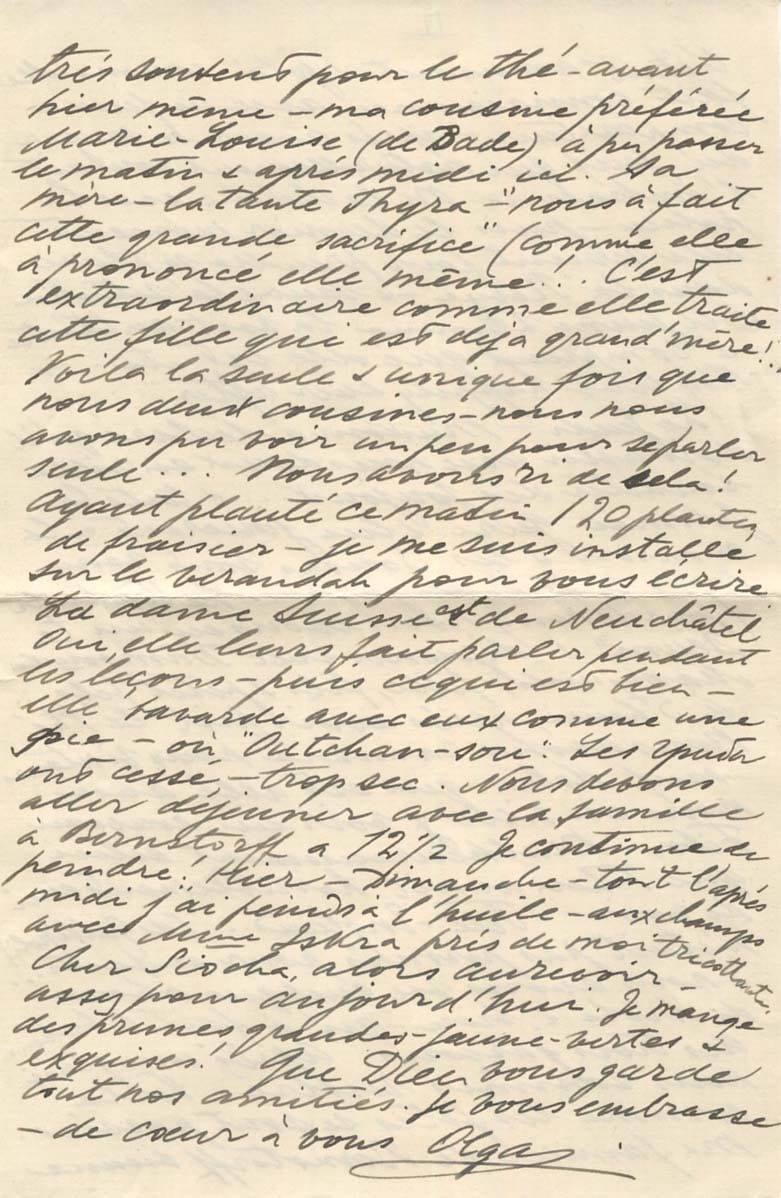 très souvent pour le thé – avant
hier même – ma cousine préférée
Marie-Louise (de Bade) à pu passer
le matin & aprés midi ici. Sa
mère – la tante Thyra – "nous à fait
cette grande sacrifice" (comme elle
à prononcé elle même!.. C'est
extraordinaire comme elle traite
cette fille qui est deja grand'mère!..
Voila la seule & unique fois que
nous deux cousines – nous nous
avons pu voir un peu pour se parler
seule... Nous avons ri de sela!
Ayant planté ce matin 120 plantes
de fraisier – je me suis installé
sur le verandah pour vous écrire.
La dame Suisse est de Neuchâtel
Oui, elle leurs fait parler pendant
les leçons – puis ce qui est bien –
elle bavarde avec eux comme une
pie – ou "Outchan-sou". Les
ont cessé, – trop sec. Nous devons
aller déjeuner avec la famille
à Bernstorff a 12 1/2 Je continue de
peindre! Hier – Dimanche – tout l'aprés
midi j'ai peinds à l'huile – aux champs
avec Mme Iskra prés de moi tricottante.
Cher Siocha, alors aurevoir –
assez pour aujourd'hui. Je mange
des prunes grandes – jaune-vertes &
exquises! Que Dieu vous garde
tout nos amitiés. Je vous embrasse
– de cœur à vous Olga